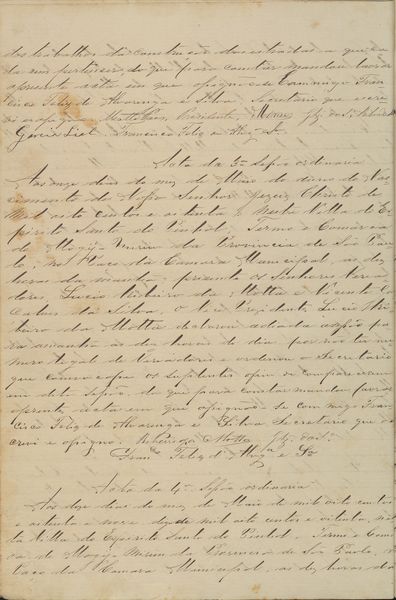 dos trabalhos da construcção das estradas a que ca
da um pertencer, do que para constar mandou lavrar
a presente acta em que assignão. Eu
cisco Felis de Alvarenga e Silva Secretario que escre
vi e assigno. Presidente,
Garcia Leal. Francisco Felis
Acta da 3ª Sessão ordinaria
Aos onze dias do mez de Maio do anno do Nas
cimento de Nosso Senhor Jezus Christo de
Mil oito centos e oitenta, nesta Villa do Es
pirito Santo do Pinhal, Termo e Comarca
de Mogy-Mirim da Provincia de São Pau
lo, no Paço da Camara Municipal, as dez
horas da manhã, presente os Senhores Verea
dores, Lucio Ribeiro da Motta e Vicente
da Silva, o Vice Presidente, Lucio Ri
beiro da Motta declarou adiada a sessão pa
ra amanhã as dez horas do dia, por não ter nu
mero legal de vereadores e ordenou o Secretario
que convocasse os suplentes afim de comparecerem
em dita sessão, do que para constar mandou lavrar
a presente acta em que assignão-se commigo Fran
cisco Felis de Alvarenga e Silva Secretario que es
crevi e assigno. Ribeiro da Motta
Felis d' e Sª
Acta da 4ª Sessão ordinaria
Aos doze dias do mez de Maio de mil oito centos
e oitenta mil oito centos e oitenta, nes
ta Villa do Espirito Santo do Pinhal, Termo e Comar
ca de Mogy Mirim da Provincia de São Paulo, no
Paço da Camara Municipal, as dez horas da